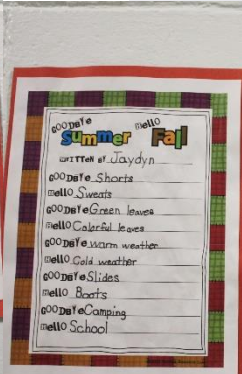 GOODBYE Summer HELLO Fall
WRITTEN BY Jaydyn
GOODBYE Shorts
HELLO Sweats
GOODBYE Green leaves
HELLO Colorful leaves
GOODBYE warm weather
HELLO Cold weather
GOODBYE Slides
HELLO Boots
GOODBYE Camping
HELLO School